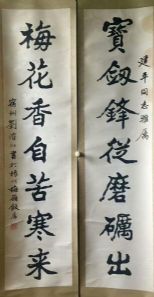 寶劔鋒從磨礪出
建平同志雅属
梅花香自苦寒来